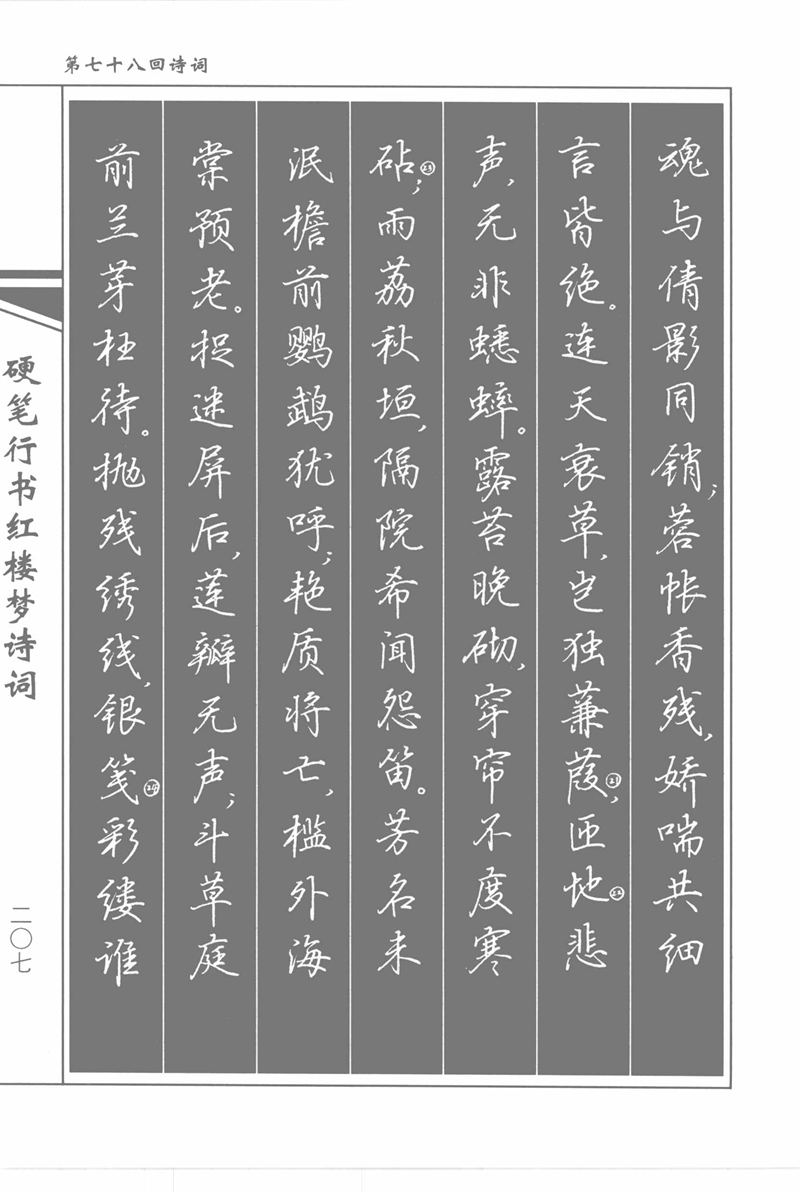 第七十八回诗词
魂与倩影同销；蓉帐香残，娇喘共细
言皆绝。连天衰草，岂独蒹葭㉑，匝地㉒悲
声，无非蟋蟀。露苔晚砌，穿帘不度寒
砧㉓；雨荔秋垣，隔院希闻怨笛。芳名未
泯檐前鹦鹉犹呼；艳质将亡，槛外海
棠预老。捉迷屏后，莲瓣无声；斗草庭
前兰芽枉待。抛残绣线，银笺㉔彩缕谁
硬笔行书红楼梦诗词
二〇七